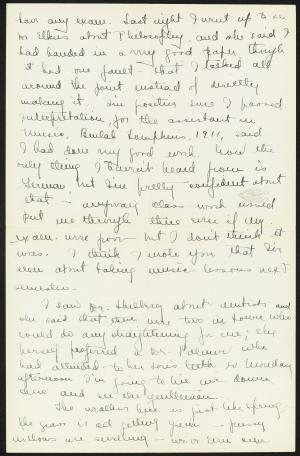 have any exam. Last night I went up to see
Elkus about Philosophy, and she said I
had handed in a very good paper, though
it had one fault - that I talked all
around the point instead of directly
making it. I'm positive since I passed
interpretation, for the assistant in
Music, Beulah Tompkins, 1911, said
I had done very good work. Now the
only thing I haven't heard from is
German, but I'm pretty confident about
that - anyway class work would
put me through there even if my
exam. were poor but I don't think it
was. I think I wrote you that I'm
about taking music lessons next
semester.
I saw Dr. about dentists and
she said that there were two in town who
could do any straightening for me; she
herself preferred a Dr. Palmer who
had attended to her son's teeth so Monday
afternoon I'm going to hie me down
there and see the gentleman.
The weather here is just like spring -
the grass is all getting green - pussy
willows are swelling - we've even seen